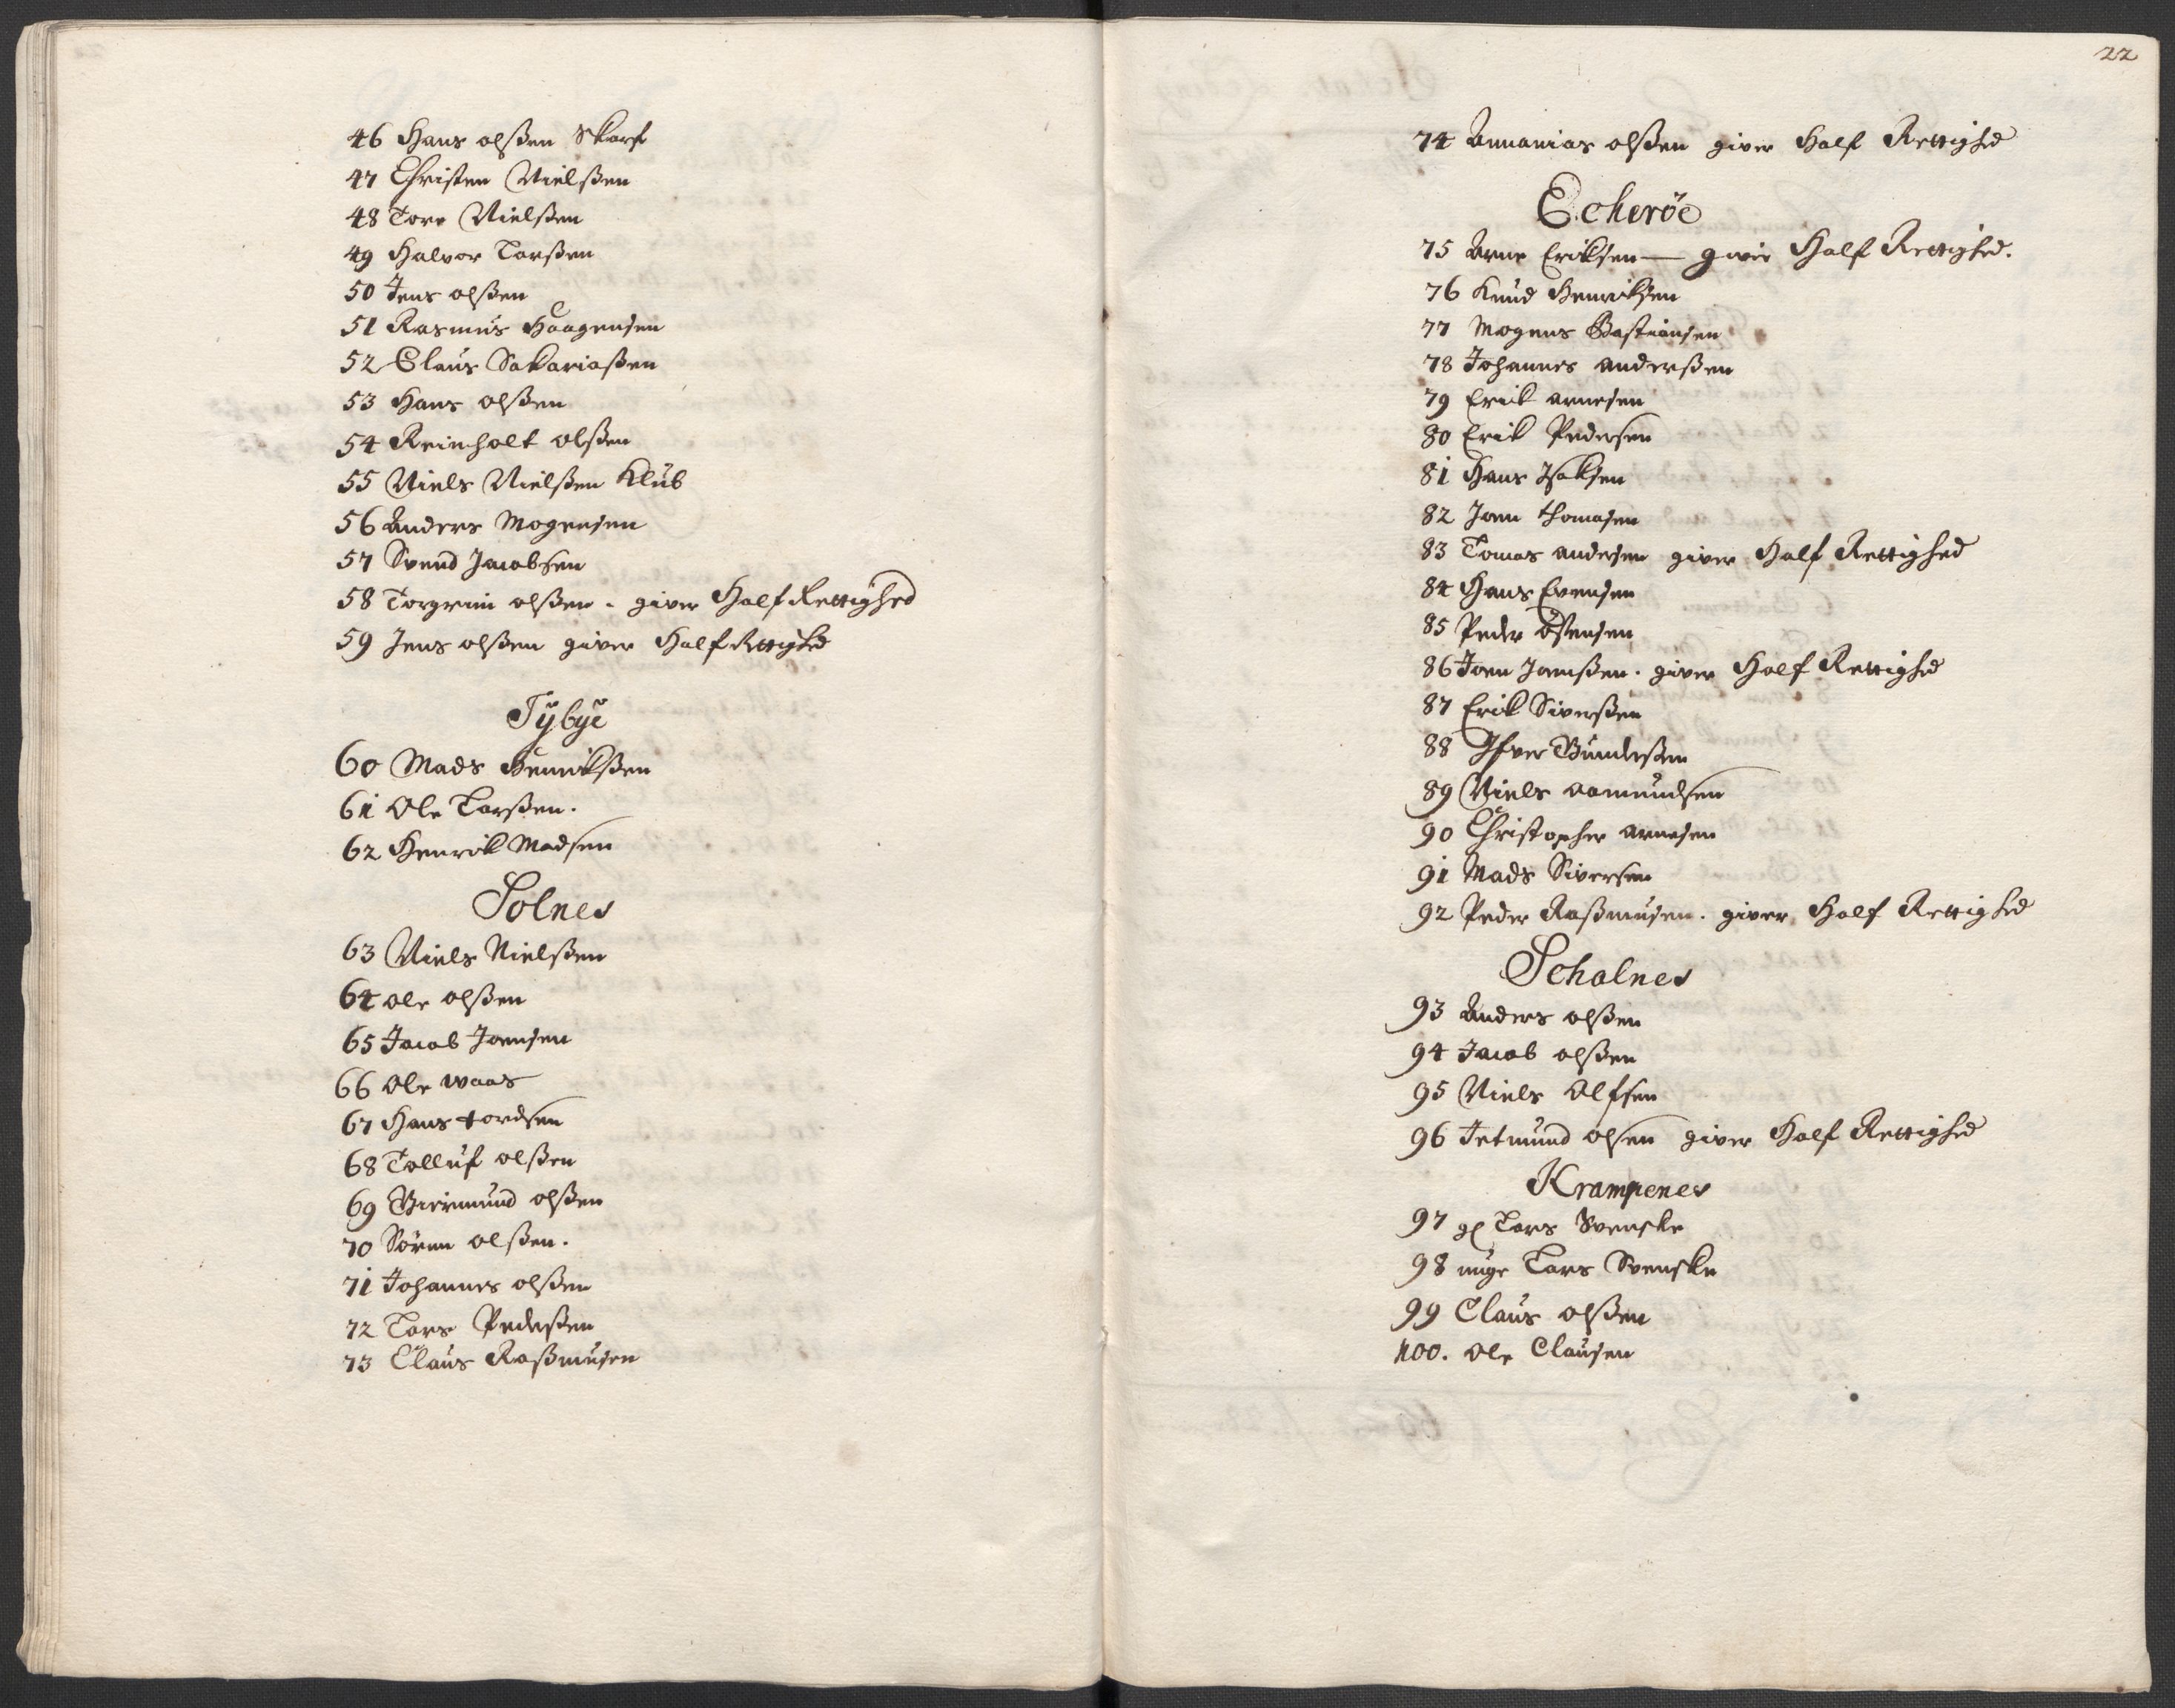 46 Hans olßen Skarf
47 Christen Nielßen
48 Tore Nielßen
49 Halvor Larßen
50 Jens olßen
51 Rasmus Haagensen
52 Claus Sakariaßen
53 Hans olßen
54 Reinholt olßen
55 Niels Nielßen Klüb
56 Anders Mogensen
57 Svend Jacobsen
58 Torgrim olßen. giver Half Rettighed
59 Jens olßen giver Half Rettighed
Tÿbÿe
60 Mads Henrikßen
61 Ole Larßen.
62 Henrik Madsen
Solnes
63 Niels Nielßen
64 ole olßen
65 Jacob Joensen
66 Ole waas
67 Hans tordsen
68 Tolluf olßen
69 Giermund olßen
70 Sören olßen.
71 Johannes olßen
72 Lars Pederßen
73 Claus Raßmusen
22
74 Annanias olßen giver Half Rettighed
Echeröe
75 Arne Eriksen — giver Half Rettighed.
76 Knud Henrikßen
77 Mogens Bastiansen
78 Johannes anderßen
79 Erik arnesen
80 Erik Pedersen
81 Hans Isaksen
82 Joen thomasen
83 Tomas andersen giver Half Rettighed
84 Hans Evensen
85 Peder östensen
86 Joen Joenßen. giver Half Rettighed
87 Erik Siverßen
88 Ifver Gunderßen
89 Niels aamundsen
90 Christopher arnesen
91 Mads Siversen
92 Peder Raßmusen. giver Half Rettighed
Scholnes
93 Anders olßen
94 Jacob olßen
95 Niels Olfsen
96 Jetmund olsen giver Half Rettighed
Krampenes
97 gl Lars Svenske
98 unge Lars Svenske
99 Claus olßen
100. Ole Clausen